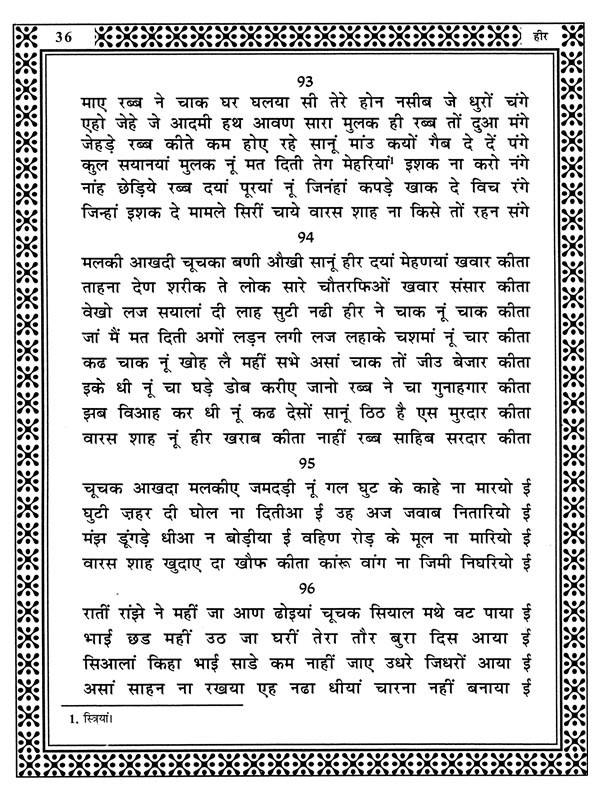 36
हीर
93
माए रब्ब ने चाक घर घलया सी तेरे होन नसीब जे धुरों चंगे
एहो जेहे जे आदमी हथ आवण सारा मुलक ही रब्ब तों दुआ मंगे
जेहड़े रब्ब कीते कम होए रहे सानूं मांउ कयों गैब दे दें पंगे
कुल सयानयां मुलक नूं मत दिती तेग मेहरियां¹ इशक ना करो नंगे
नांह छेड़िये रब्ब दयां पूरयां नूं जिनंहां कपड़े खाक दे विच रंगे
जिन्हां इशक दे मामले सिरीं चाये वारस शाह ना किसे तों रहन संगे
94
मलकी आखदी चूचका बणी औखी सानूं हीर दयां मेहणयां खवार कीता
ताहना देण शरीक ते लोक सारे चौतरफिओं खवार संसार कीता
वेखो लज सयालां दी लाह सुटी नढी हीर ने चाक नूं चाक कीता
जां मैं मत दिती अगों लड़न लगी लज लहाके चशमां नूं चार कीता
कढ चाक नूं खोह लै महीं सभे असां चाक तों जीउ बेजार कीता
इके धी नूं चा घड़े डोब करीए जानो रब्ब ने चा गुनाहगार कीता
झब विआह कर धी नूं कढ देसों सानूं ठिठ है एस मुरदार कीता
वारस शाह नूं हीर खराब कीता नाहीं रब्ब साहिब सरदार कीता
95
चूचक आखदा मलकीए जमदड़ी नूं गल घुट के काहे ना मारयो ई
घुटी ज़हर दी घोल ना दितीआ ई उह अज जवाब नितारियो ई
मंझ डूंगड़े धीआ न बोड़ीया ई वहिण रोड़ के मूल ना मारियो ई
वारस शाह खुदाए दा खौफ कीता कांरू वांग ना जिमी निघरियो ई
96
रातीं रांझे ने महीं जा आण ढोइयां चूचक सियाल मथे वट पाया ई
भाई छड महीं उठ जा घरीं तेरा तौर बुरा दिस आया ई
सिआलां किहा भाई साडे कम नाहीं जाए उधरे जिधरों आया ई
असां साहन ना रखया एह नढा धीयां चारना नहीं बनाया ई
1. स्त्रियां।